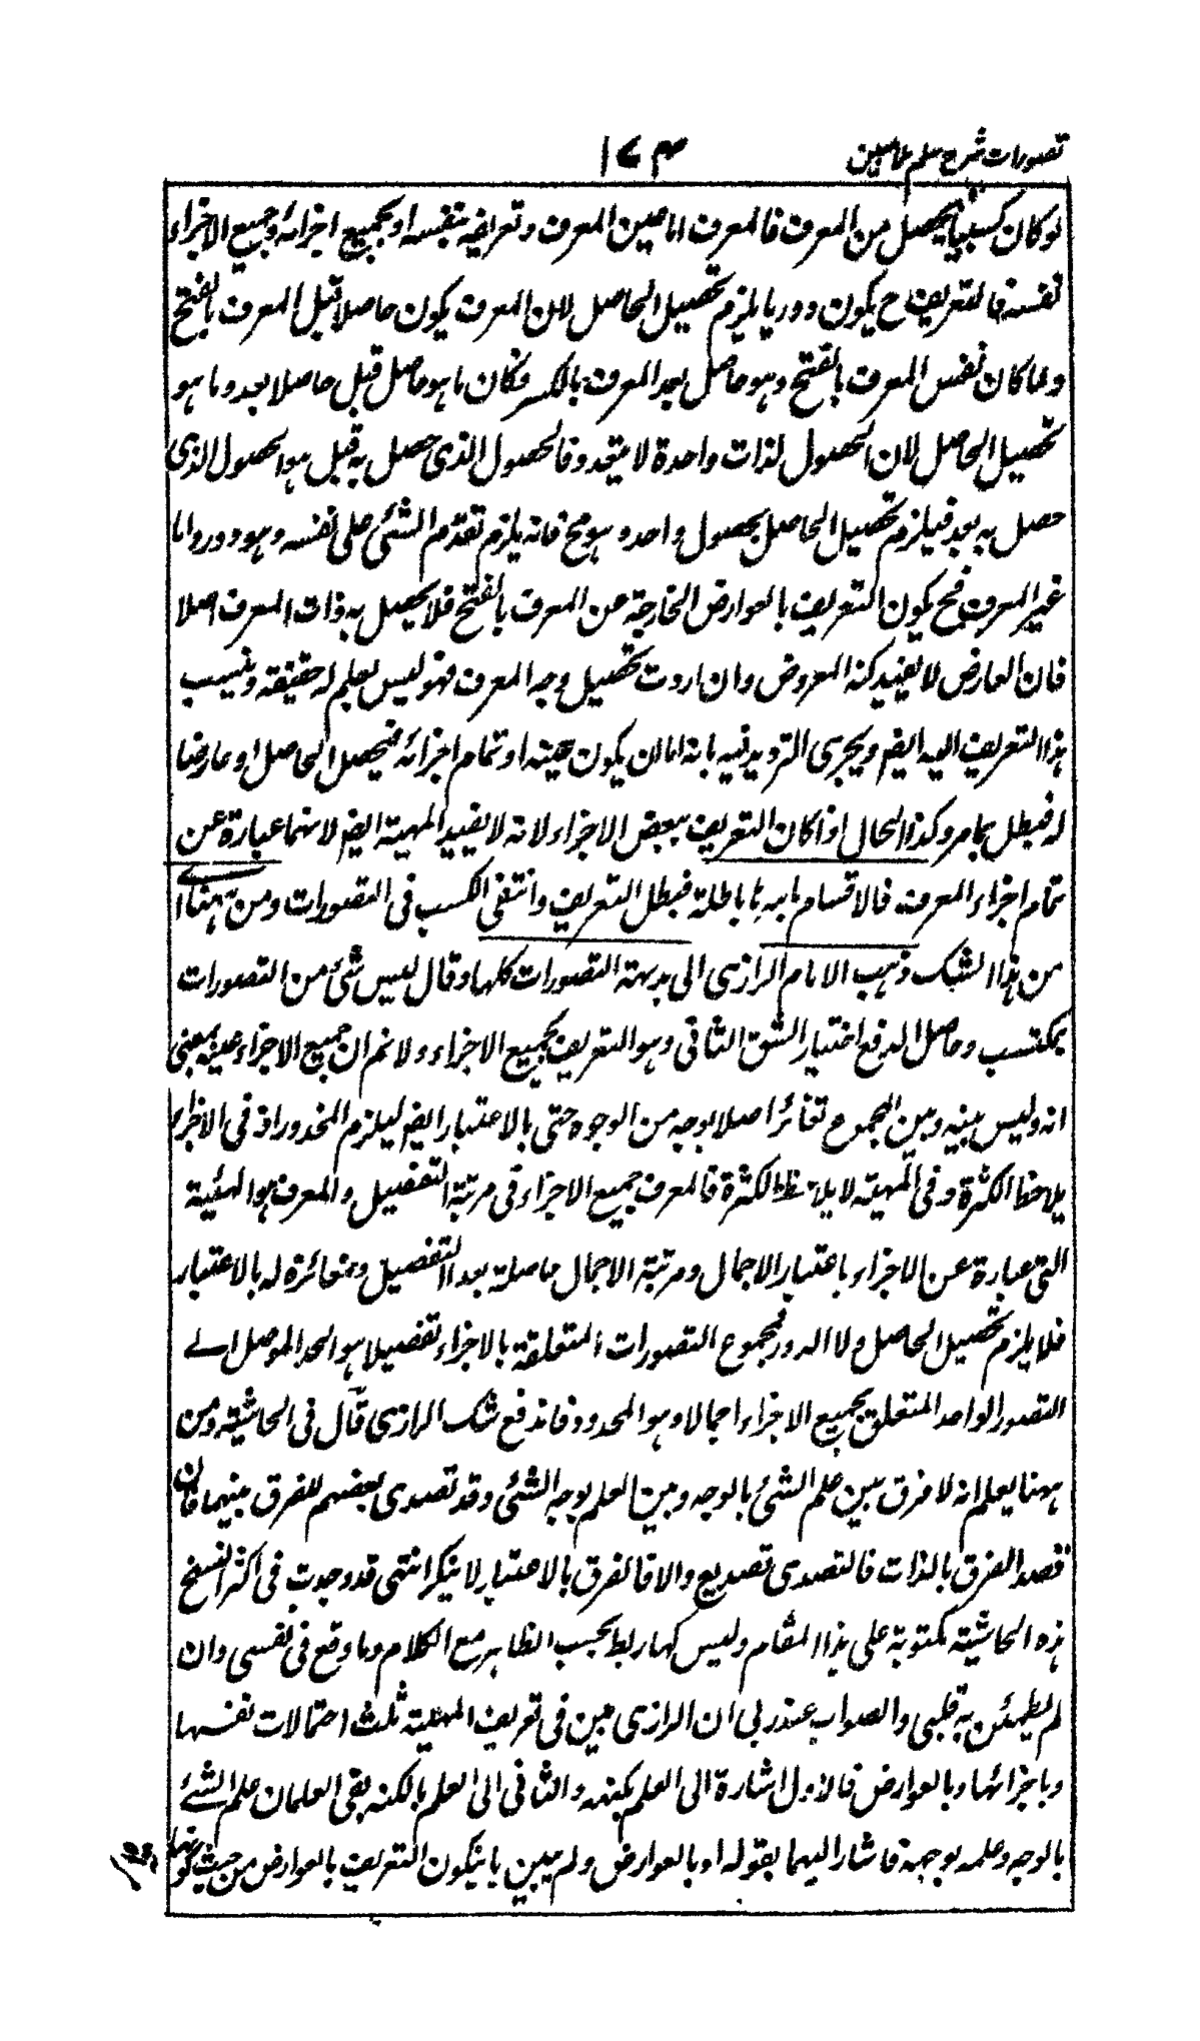 تصورات شرح سلم ملا مبین ۱۷۳
لو كان كسبيا يحصل من المعرف فالمعرف اما عين المعرف وتعريفه بنفسه او بجميع اجزائه وجميع الاجزاء
نفسه فالتعريف ح يكون دوريا يلزم تحصيل الحاصل لان المعرف يكون حاصلا قبل المعرف بالفتح
ولما كان نفس المعرف بالفتح وهو حاصل بعد المعرف بالكسر فكان ما هو حاصل قبل حاصلا بعد وما هو
تحصيل الحاصل لان الحصول لذات واحدة لا يتعدد فالحصول الذى حصل به قبل هو الحصول الذى
حصل به بعد فيلزم تحصيل الحاصل بحصول واحد وهو مح فانه يلزم تقدم الشئ على نفسه وهو دور واما
غير المعرف فح يكون التعريف بالعوارض الخارجة عن المعرف بالفتح فلا يحصل به ذات المعرف اصلا
فان العارض لا يفيد كنه المعروض وان اردت تحصيل وجه المعرف فهو ليس بعلم له حقيقة وينسب
هذا التعريف اليه ايضا ويجرى الترديد فيه بانه اما ان يكون عينه او تمام اجزائه فيحصل الحاصل او عارضا
له فبطل بما مر وكذا الحال اذا كان التعريف ببعض الاجزاء لانه لا يفيد المهية ايضا لانها عبارة عن
تمام اجزاء المعرف فالاقسام باسرها باطلة فبطل التعريف وانتفى الكسب فى التصورات ومن ههنا
من هذا الشك ذهب الامام الرازى الى بديهة التصورات كلها وقال ليس شئ من التصورات
بمكتسب وحاصل الدفع اختيار الشق الثانى وهو التعريف بجميع الاجزاء ولا نم ان جميع الاجزاء عينه بمعنى
انه وليس بينه وبين المجموع تغائر اصلا بوجه من الوجوه حتى بالاعتبار ايضا ليلزم المحذور اذ فى الاجزاء
يلاحظ الكثرة وفى المهية لا يلاحظ الكثرة فالمعرف جميع الاجزاء فى مرتبة التفصيل والمعرف هو المهية
التى عبارة عن الاجزاء باعتبار الاجمال ومرتبة الاجمال حاصلة بعد التفصيل ومغائرة له بالاعتبار
فلا يلزم تحصيل الحاصل ولا الدور فمجموع التصورات المتعلقة بالاجزاء تفصيلا هو الحد الموصل الے
التصور الواحد المتعلق بجميع الاجزاء اجمالا وهو المحدود فاندفع شك الرازى قال فى الحاشية ومن
ههنا يعلم انه لا فرق بين علم الشئ بالوجه وبين العلم بوجه الشئ وقد تصدى بعضهم للفرق بينهما فان
قصد الفرق بالذات فالتصدى تصديع والا فالفرق بالاعتبار لا ينكر انتهى قد وجدت فى اكثر النسخ
هذه الحاشية مكتوبة على هذا المقام وليس لها ربط بحسب الظاهر مع الكلام وما وقع فى نفسى وان
لم يطمئن به قلبى والصواب عند ربى ان الرازى بين فى تعريف المهية ثلث احتمالات نفسها
وباجزائها وبالعوارض فالاول اشارة الى العلم بكنهه والثانى الى العلم بالكنه بقى العلمان علم الشئ
بالوجه وعلمه بوجهه فاشار اليهما بقوله او بالعوارض ولم يبين بان يكون التعريف بالعوارض من حيث كونها